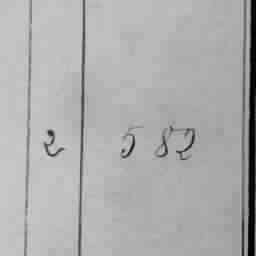 2 582